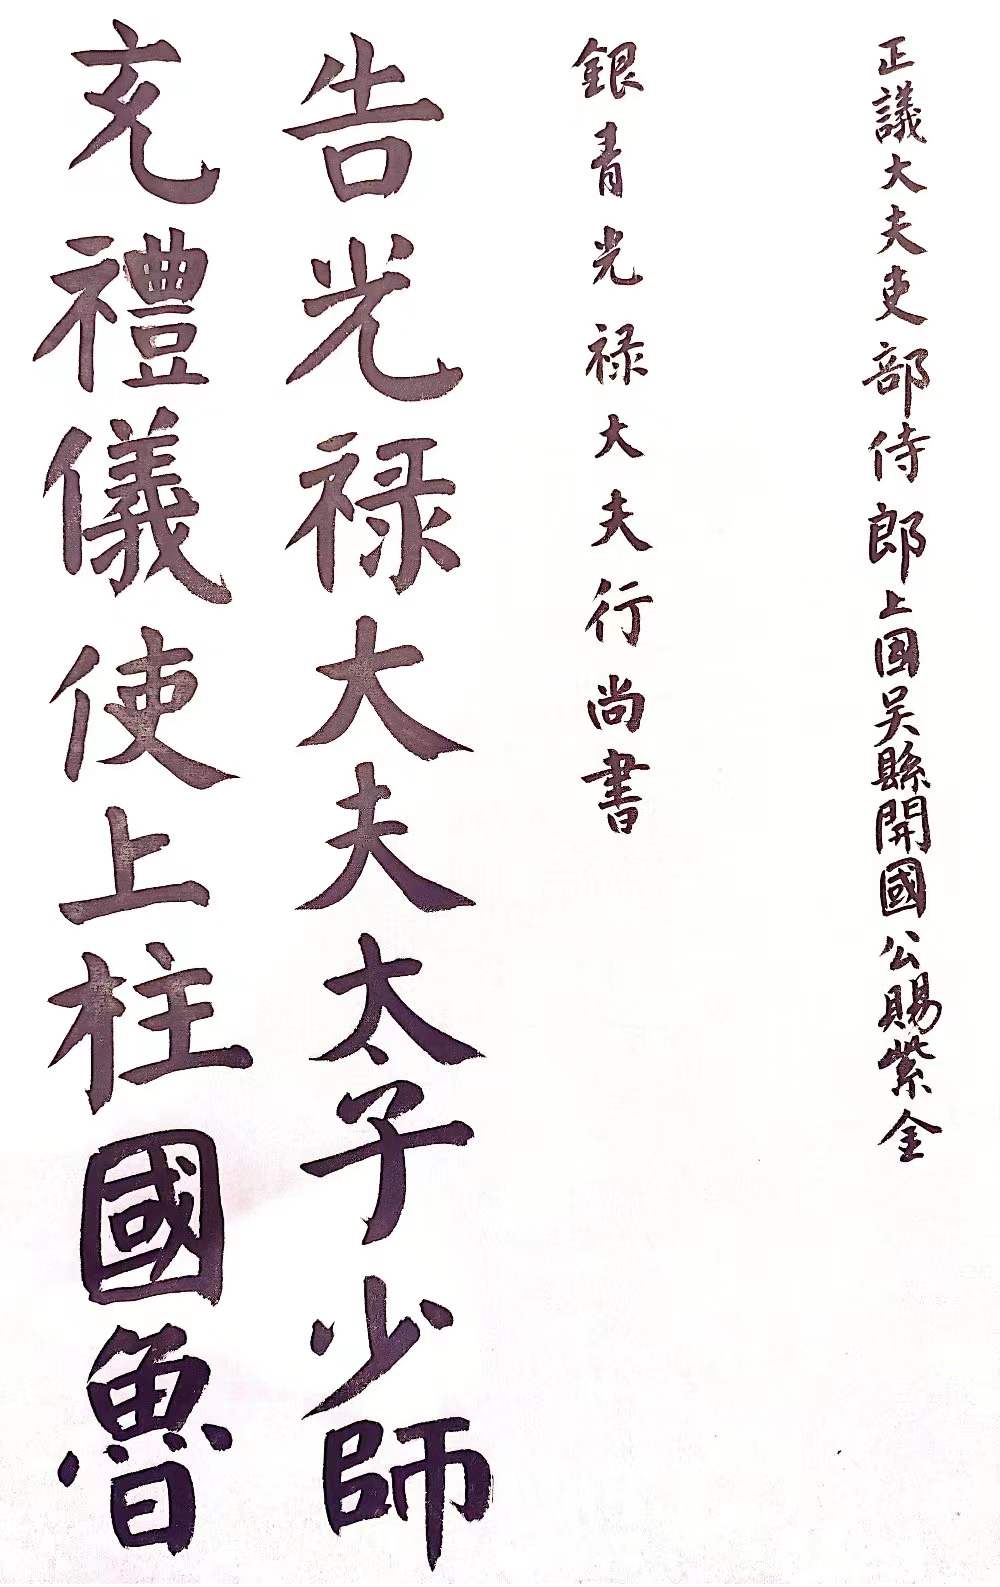 正議大夫吏部侍郎上国吴縣開國公賜紫金
銀青光禄大夫行尚書
告光禄大夫太子少師
充禮儀使上柱國魯